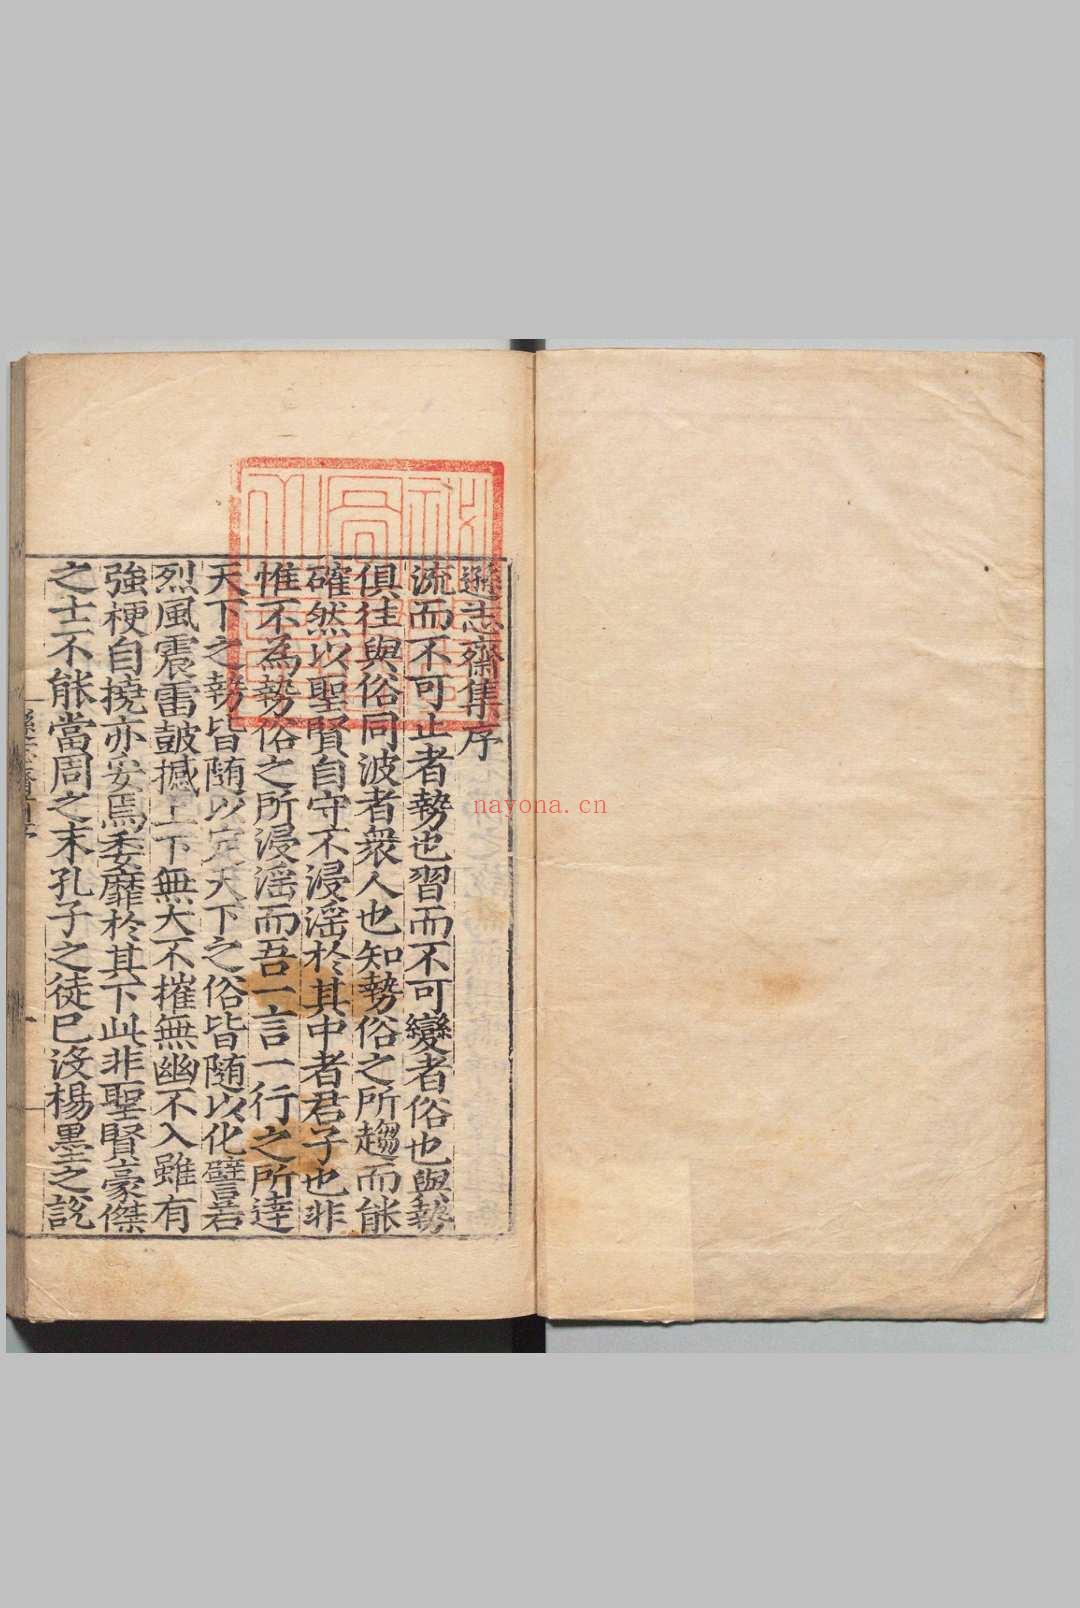 遜志齋集序
流而不可止者勢也習而不可變者俗也與勢
俱往與俗同波者衆人也知勢俗之所趨而能
確然以聖賢自守不浸淫於其中者君子也非
惟不為勢俗之所浸淫而吾一言一行之所達
天下之勢皆随以定天下之俗皆随以化譬若
烈風震雷皷撼上下無大不摧無幽不入雖有
強梗自撓亦安焉委靡於其下此非聖賢豪傑
之士不能當周之末孔子之徒已沒楊墨之説
nayona.cn